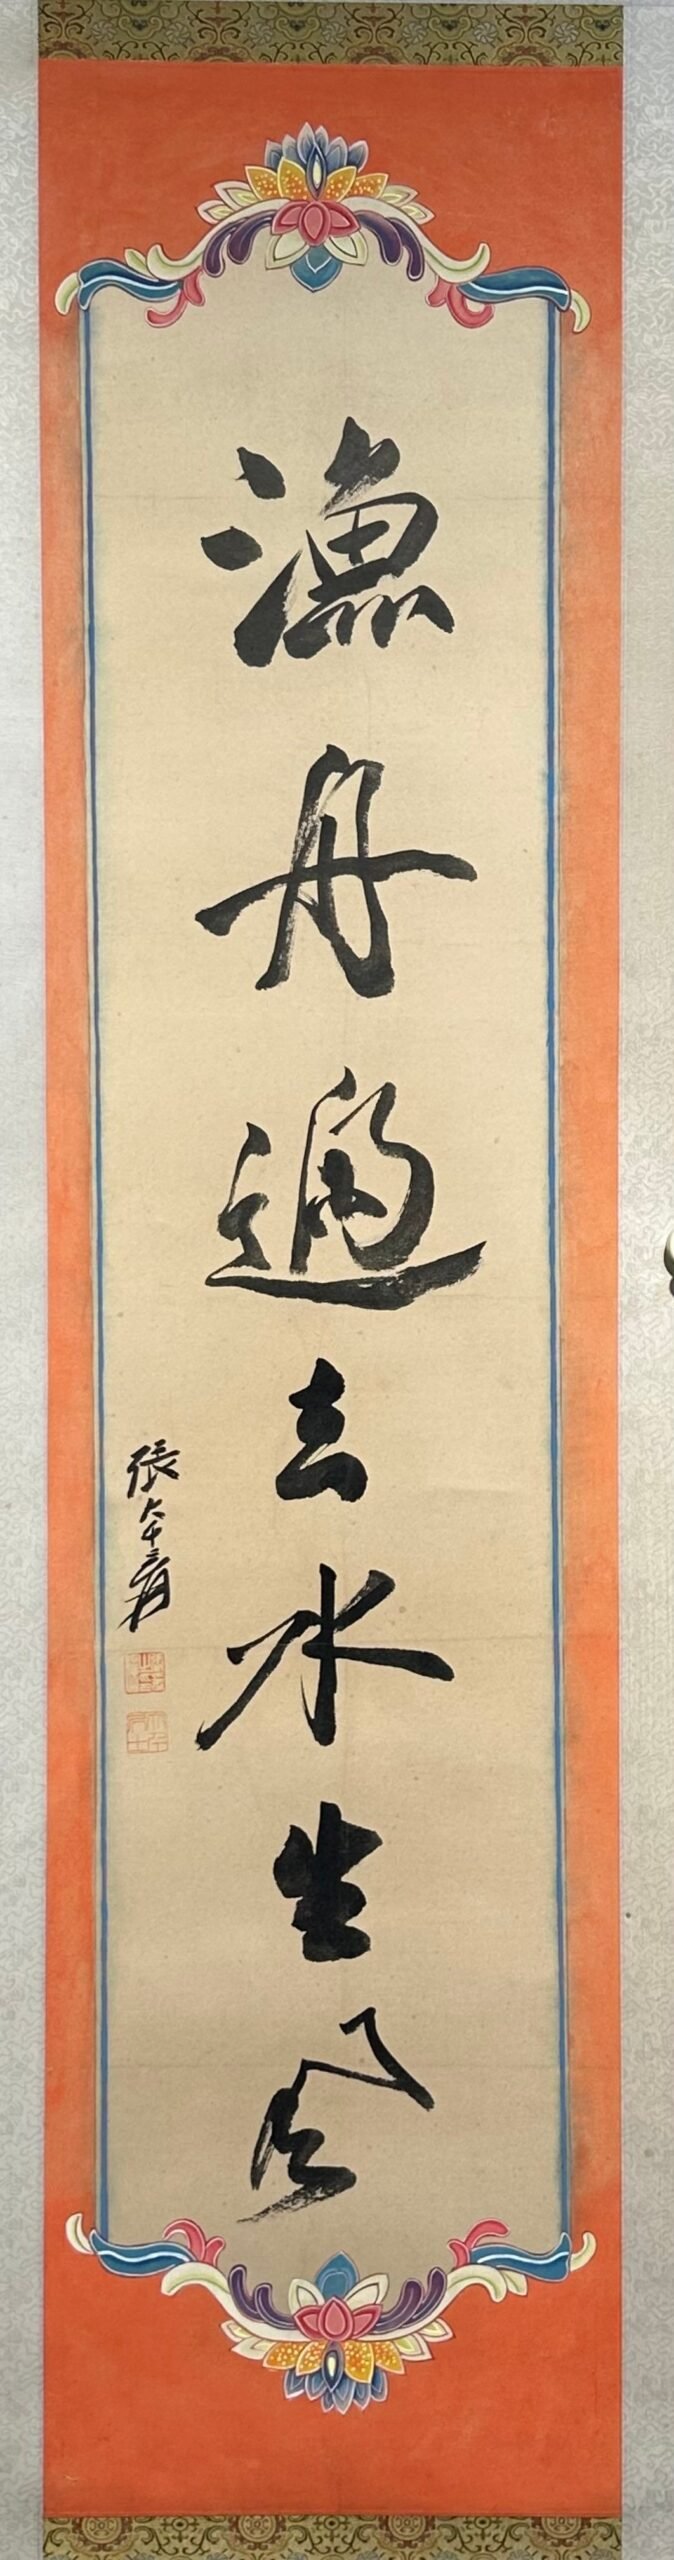 漁舟過去水生風
張大千爰